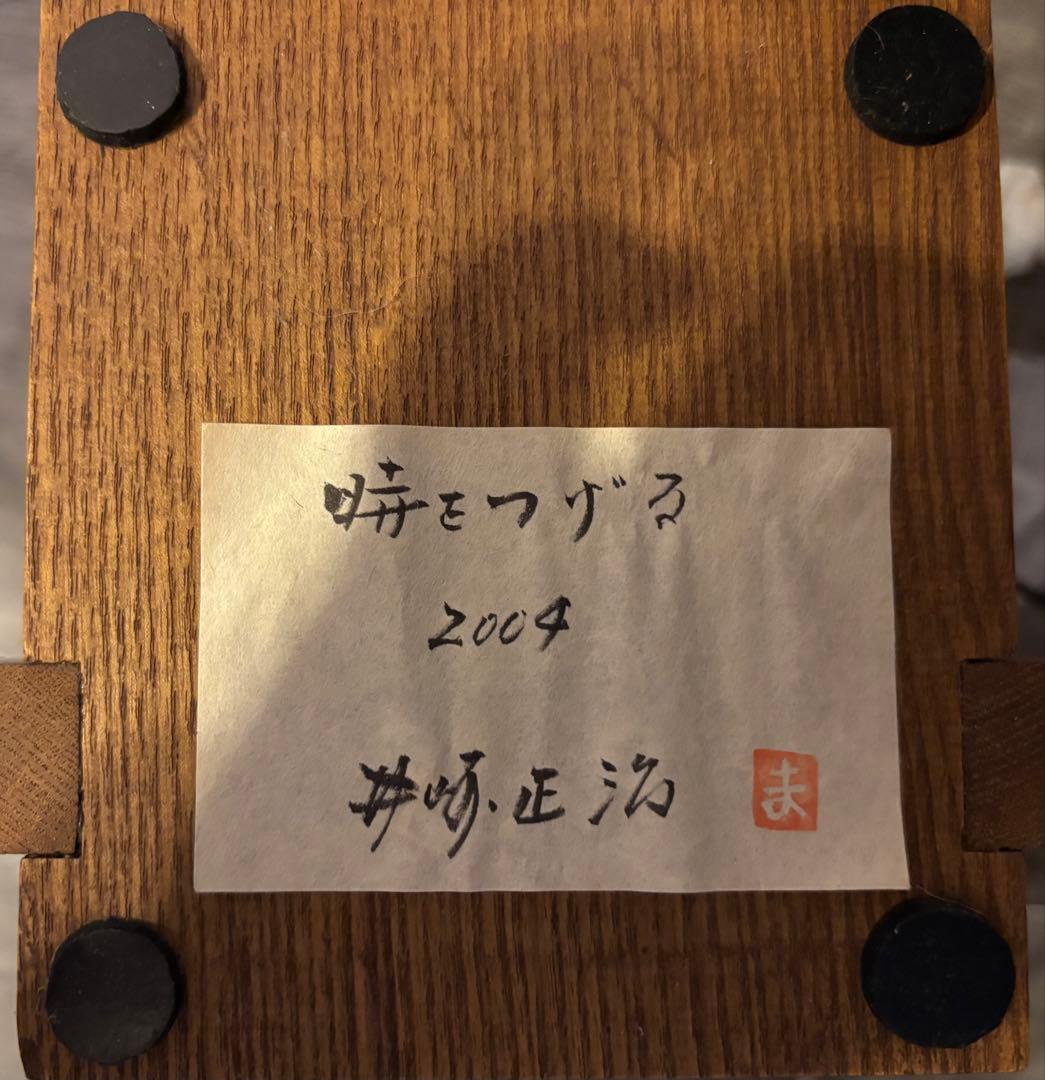 暁をつげる
2004
井崎正治
ま